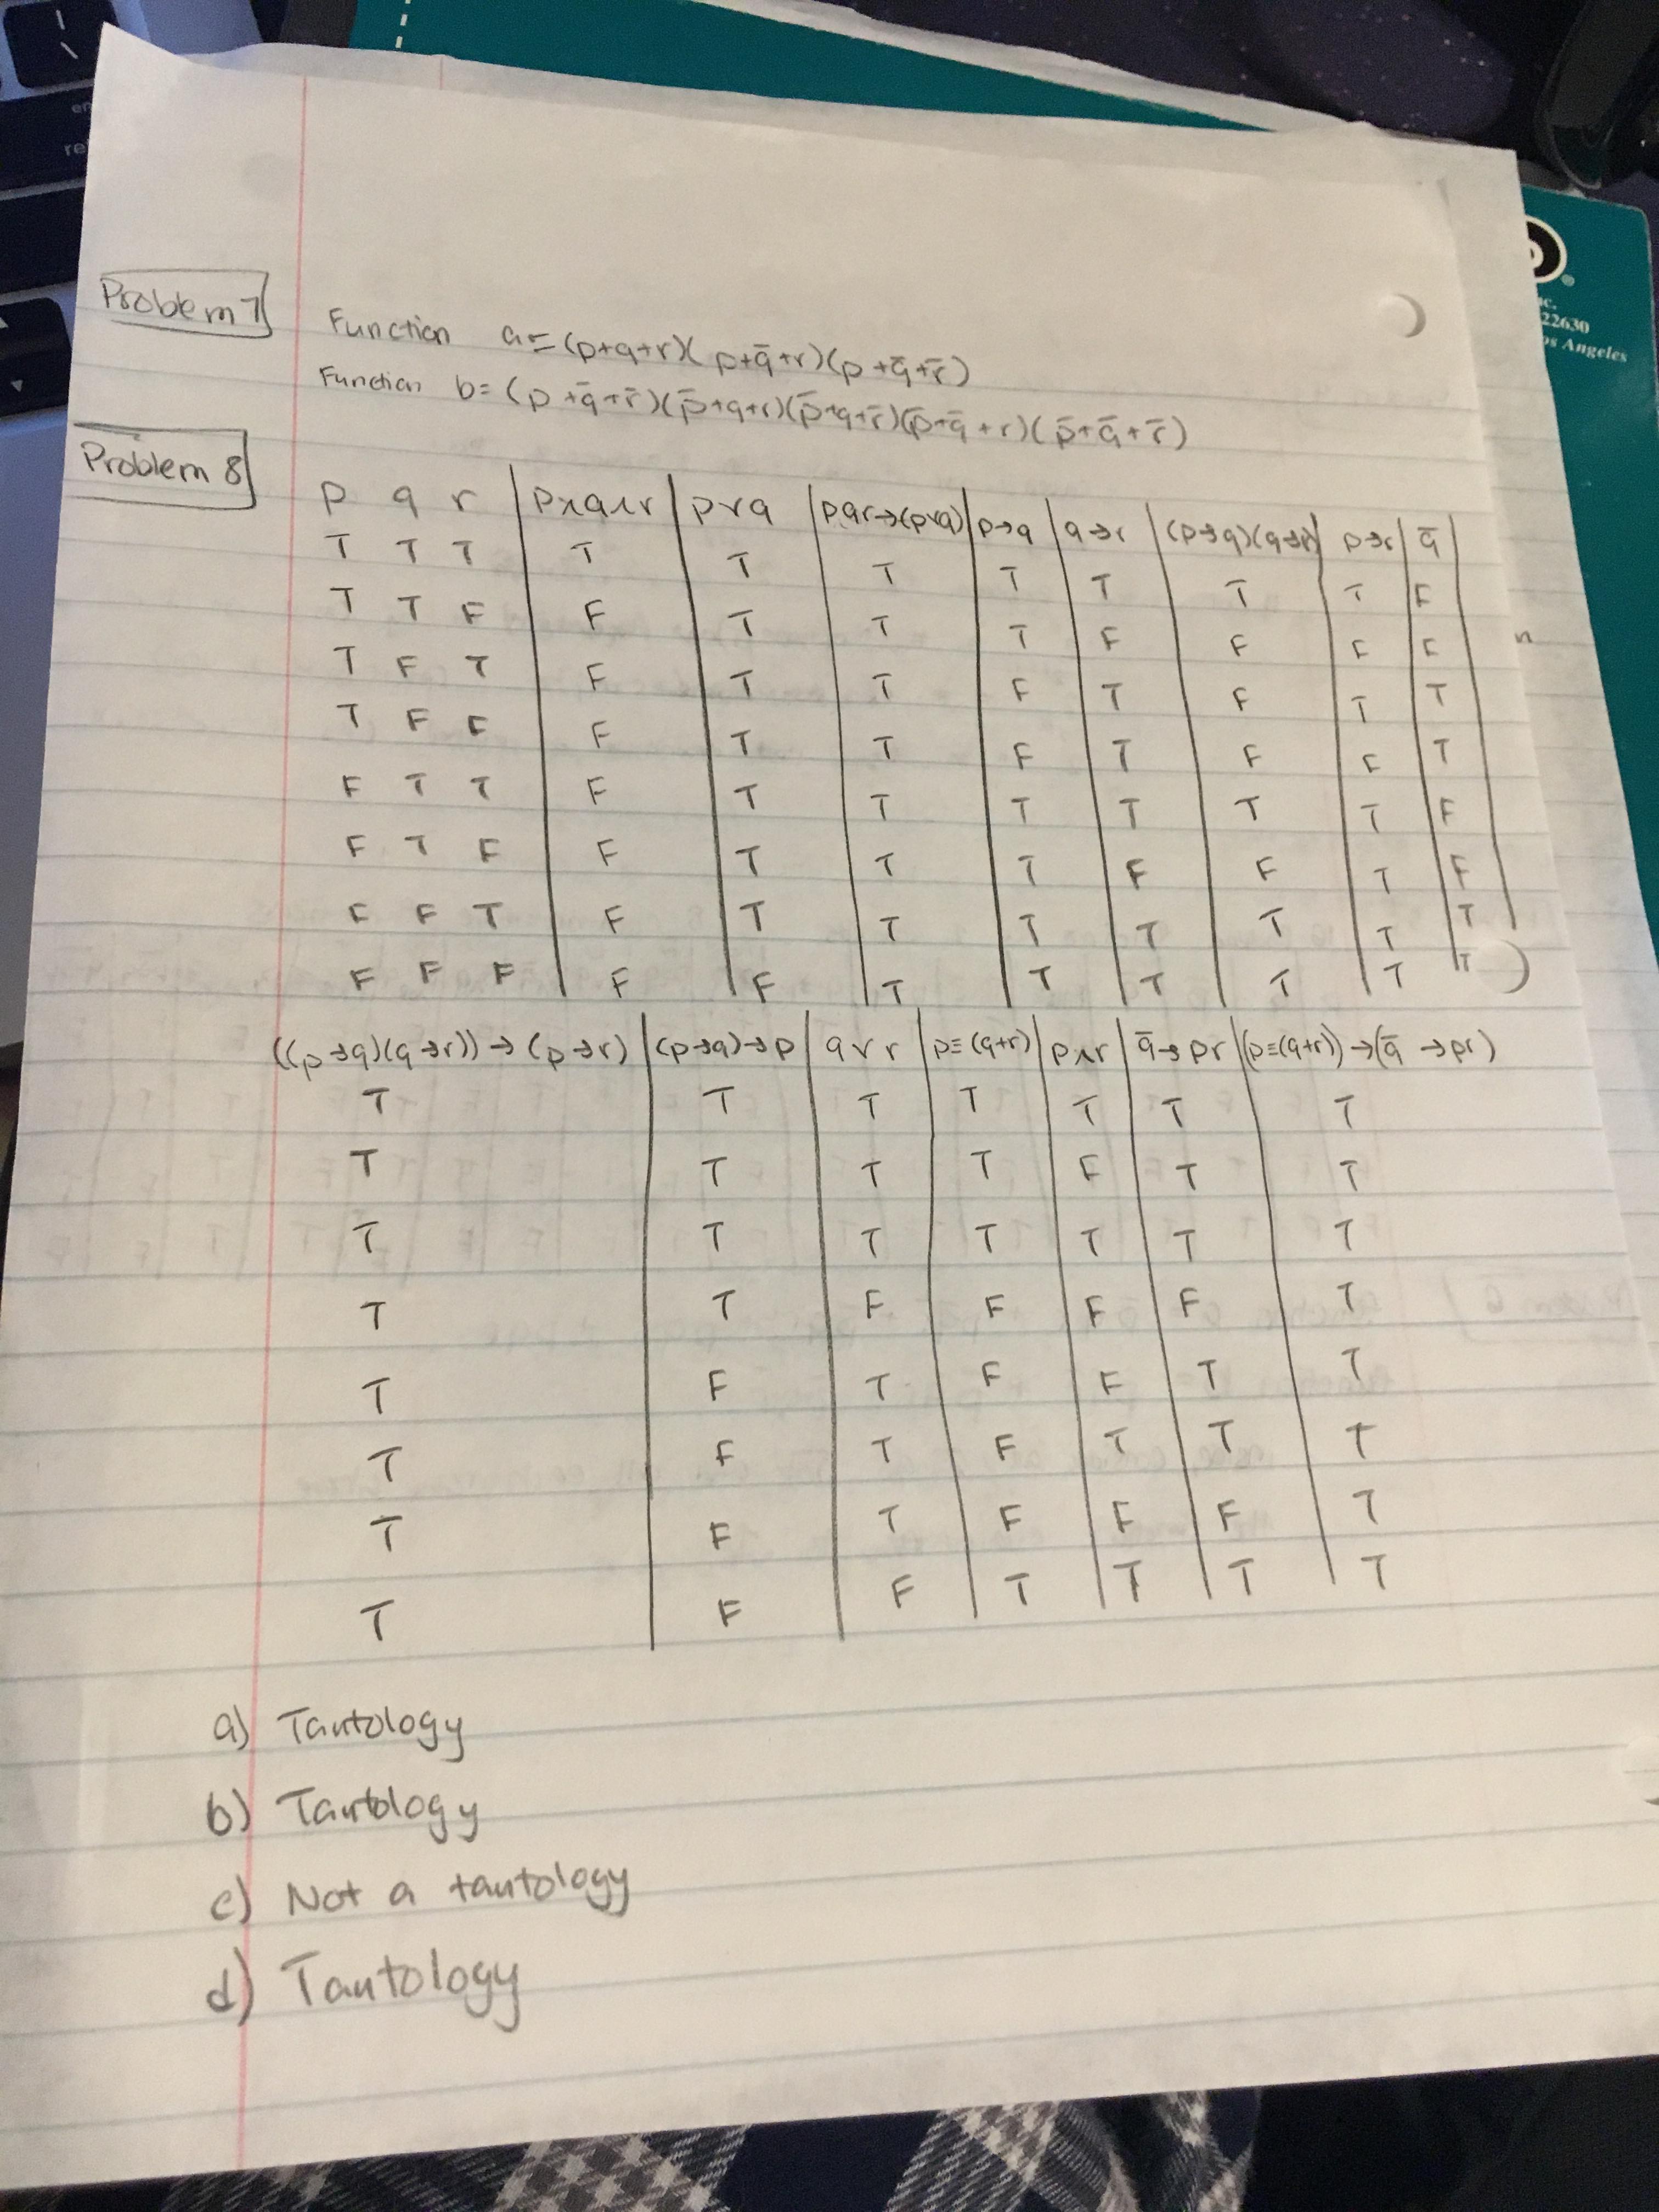 en
re
22630
os Angeles
Problem 7
Function a = (p+q+r)(p+q̄+r)(p+q̄+r̄)
Function b = (p+q̄+r̄)(p̄+q+r)(p̄+q+r̄)(p̄+q̄+r)(p̄+q̄+r̄)
Problem 8
p q r | p∧q∧r | p∨q | pqr→(p∨q) | p→q | q→r | (p→q)(q→r) | p→r | q̄ |
T T T | T | T | T | T | T | T | T | F
T T F | F | T | T | T | F | F | F | F
T F T | F | T | T | F | T | F | T | T
T F F | F | T | T | F | T | F | F | T
F T T | F | T | T | T | T | T | T | F
F T F | F | T | T | T | F | F | T | F
F F T | F | T | T | T | T | T | T | T
F F F | F | F | T | T | T | T | T | T
((p→q)(q→r))→(p→r) | (p→q)→p | q∨r | p≡(q+r) | p∧r | q̄→pr | (p≡(q+r))→(q̄→pr)
T | T | T | T | T | T | T
T | T | T | T | F | T | T
T | T | T | T | T | T | T
T | T | F | F | F | F | T
T | F | T | F | F | T | T
T | F | T | F | T | T | T
T | F | T | F | F | F | T
T | F | F | T | T | T | T
a) Tautology
b) Tautology
c) Not a tautology
d) Tautology